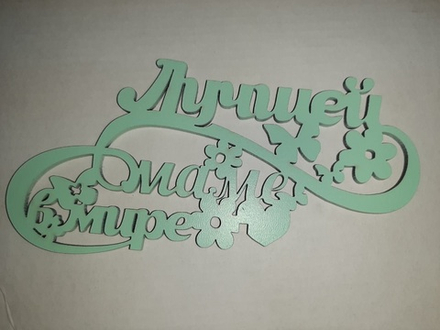 Лучшей
маме
в мире